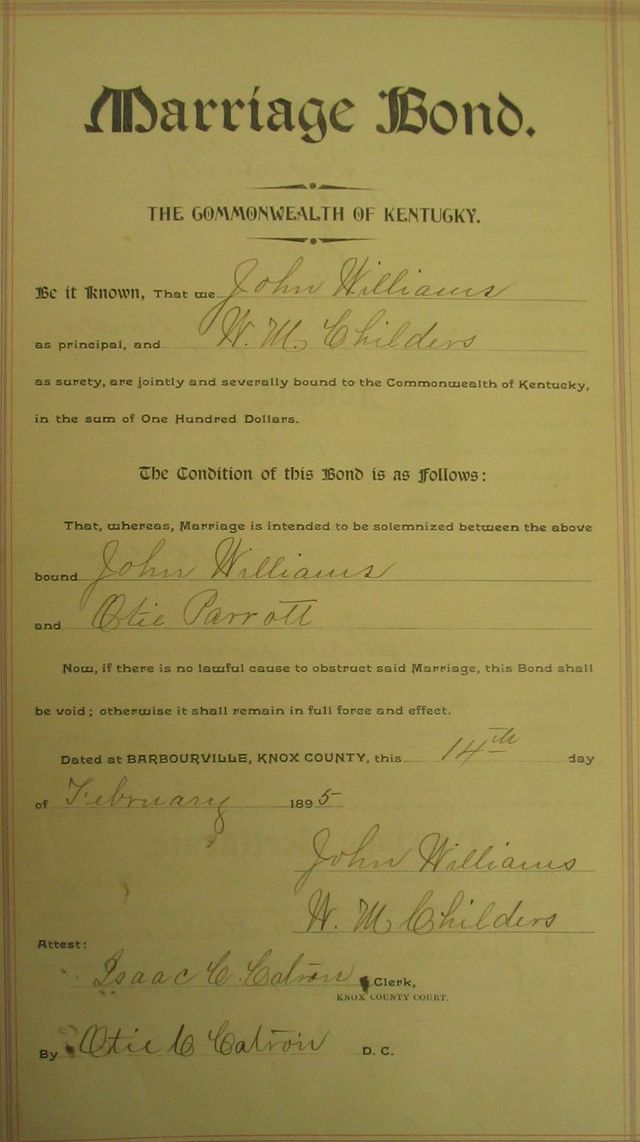 Marriage Bond.
THE COMMONWEALTH OF KENTUCKY.
Be it Known, That we John Williams
as principal, and W. M. Childers
as surety, are jointly and severally bound to the Commonwealth of Kentucky,
in the sum of One Hundred Dollars.
The Condition of this Bond is as Follows:
That, whereas, Marriage is intended to be solemnized between the above
bound John Williams
and Otie Parrott
Now, if there is no lawful cause to obstruct said Marriage, this Bond shall
be void; otherwise it shall remain in full force and effect.
Dated at BARBOURVILLE, KNOX COUNTY, this 14th day
of February 1895
John Williams
W. M Childers
Attest:
Isaac C. Catron Clerk,
KNOX COUNTY COURT.
By Otie C Catron D. C.